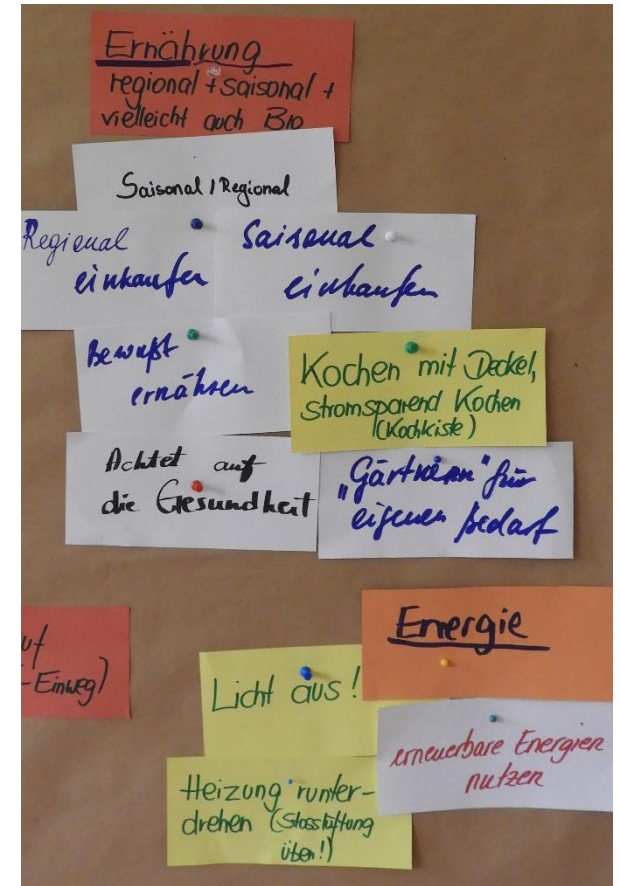 Ernährung
regional + saisonal +
vielleicht auch Bio
Saisonal / Regional
Regional
einkaufen
Saisonal
einkaufen
Bewußt
ernähren
Kochen mit Deckel,
stromsparend Kochen
(Kochkiste)
Achtet auf
die Gesundheit
„Gärtnern" für
eigenen Bedarf
Einweg)
Energie
Licht aus!
erneuerbare Energien
nutzen
Heizung runter-
drehen (Stosslüftung
üben!)